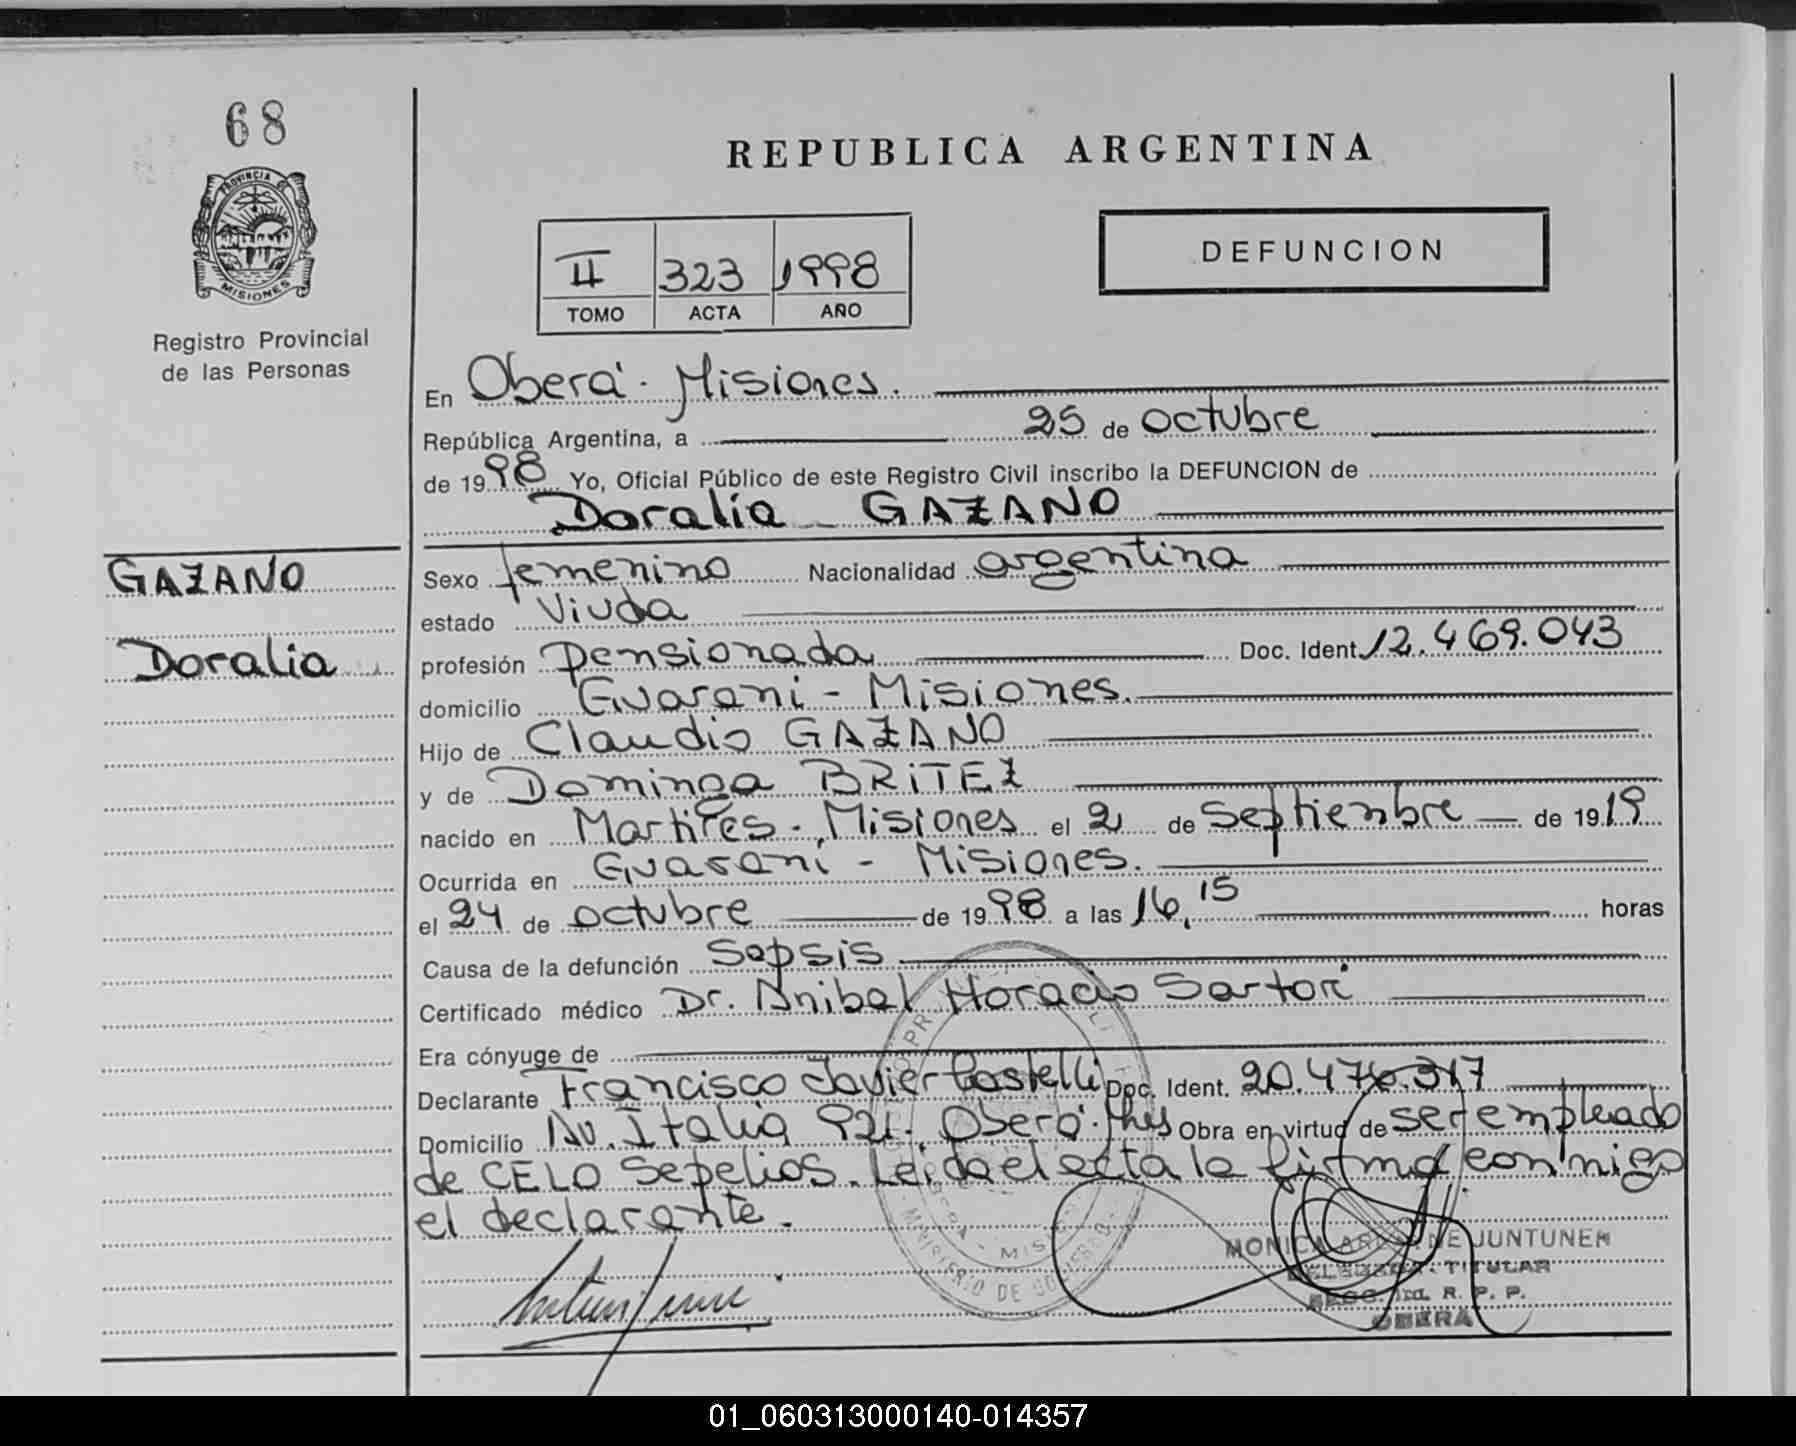 68
PROVINCIA DE
MISIONES
Registro Provincial
de las Personas
GAZANO
Doralia
REPUBLICA ARGENTINA
DEFUNCION
II 323 1998
TOMO ACTA AÑO
En Oberá - Misiones.
República Argentina, a 25 de octubre
de 1998 Yo, Oficial Público de este Registro Civil inscribo la DEFUNCION de
Doralia GAZANO
Sexo femenino Nacionalidad argentina
estado Viuda
profesión pensionada Doc. Ident. 12.469.043
domicilio Guaraní - Misiones.
Hijo de Claudio GAZANO
y de Dominga BRITEZ
nacido en Martires - Misiones el 2 de Septiembre de 1919
Ocurrida en Guaraní - Misiones.
el 24 de octubre de 1998 a las 16,15 horas
Causa de la defunción Sepsis
Certificado médico Dr. Anibal Horacio Sartori
Era cónyuge de
Declarante Francisco Javier Castelli Doc. Ident. 20.476.317
Domicilio Av. Italia 921 - Oberá - Mnes Obra en virtud de ser empleado
de CELO Sepelios. Leida el acta la firma conmigo
el declarante.
MONICA DE JUNTUNEN
DELEGADA TITULAR
SECC. 1ra. R. P. P.
OBERA
MINISTERIO DE GOBIERNO
01_060313000140-014357